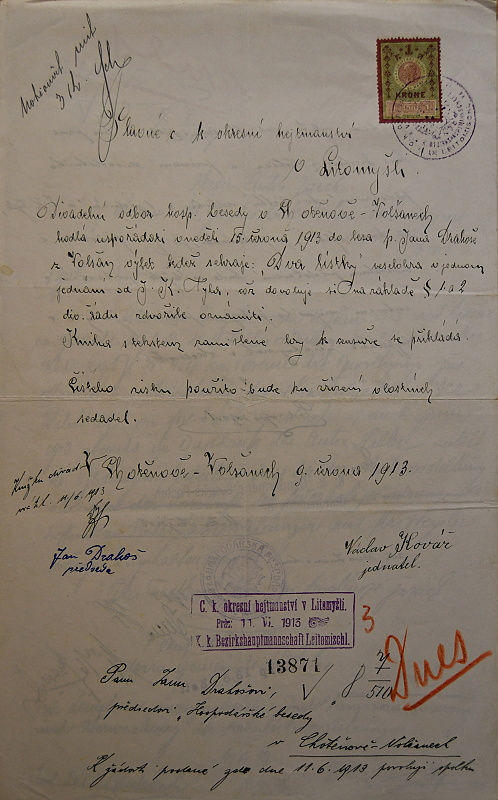 1
KRONE
Slavné c. k. okresní hejtmanství
v Litomyšli.
Divadelní odbor hosp. besedy v Chotěnově-Volšanech
hodlá uspořádati v neděli 15. února 1913 do lesa p. Jana Drahoše
z Volšan výlet kdež sehraje: „Dva lístky“ veselohra v jednom
jednání od J. K. Tyla, což dovoluje si na základě § 1 a 2
div. řádu zdvořile oznámiti.
Kniha s textem zamýšlené hry k censuře se přikládá.
Čistého zisku použito bude ku zřízení vlastních
sedadel.
V Chotěnově-Volšanech 9. února 1913.
11/6 1913
Jan Drahoš
předseda
Václav Kovář
jednatel.
C. k. okresní hejtmanství v Litomyšli.
Präs: 11. VI. 1913
K. k. Bezirkshauptmannschaft Leitomischl.
3
13871
Dnes
Panu Janu Drahošovi,
předsedovi „Hospodářské besedy
v Chotěnově-Volšanech
K žádosti podané zde dne 11.6.1913 povoluji spolku